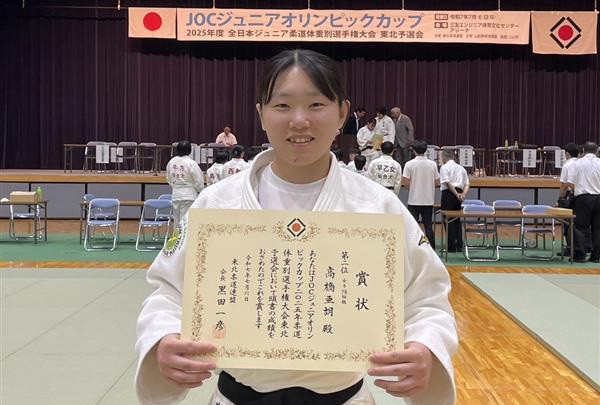 JOCジュニアオリンピックカップ
2025年度 全日本ジュニア柔道体重別選手権大会 東北予選会
令和7年7月6日(日)
三友エンジニア体育文化センター
アリーナ
賞状
第一位
女子78kg級
高橋亜胡 殿
あなたはJOCジュニアオリン
ピックカップ二〇二五年柔道
体重別選手権大会東北
予選会において頭書の成績を
おさめたのでこれを賞します
令和七年七月六日
東北柔道連盟
会長 黒田一彦
早乙女
仙台大